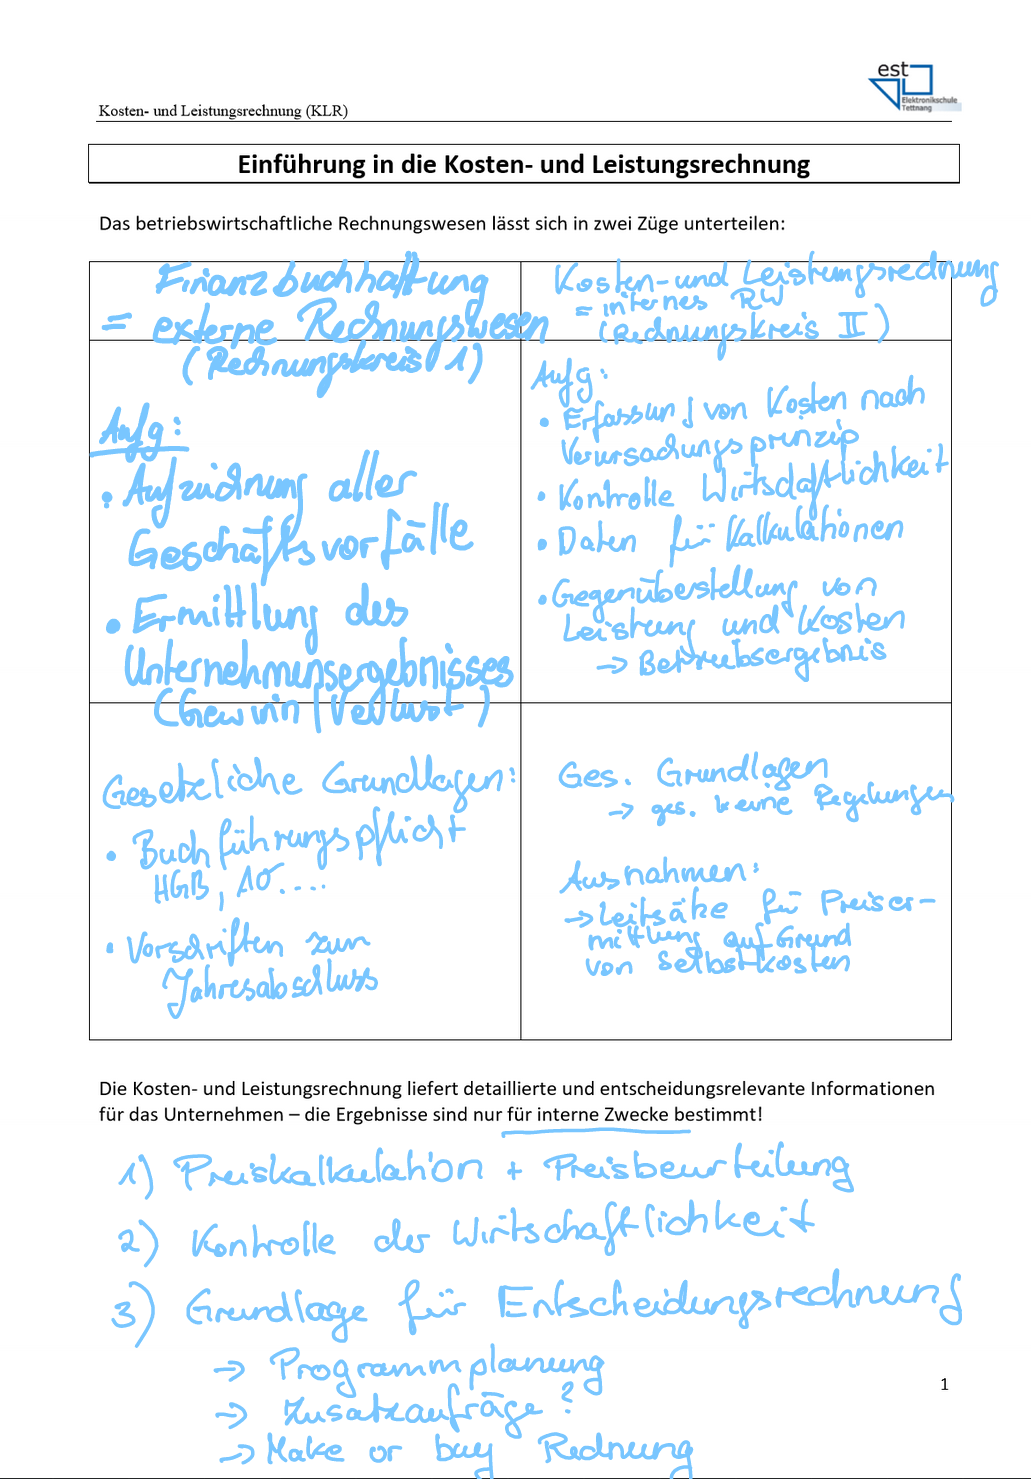 est
Elektronikschule
Tettnang
Kosten- und Leistungsrechnung (KLR)
Einführung in die Kosten- und Leistungsrechnung
Das betriebswirtschaftliche Rechnungswesen lässt sich in zwei Züge unterteilen:
Finanzbuchhaltung
= externe Rechnungswesen
(Rechnungskreis 1)
Kosten- und Leistungsrechnung
= internes RW
(Rechnungskreis II)
Aufg:
• Aufzeichnung aller
Geschäftsvorfälle
• Ermittlung des
Unternehmensergebnisses
(Gewinn | Verlust)
Aufg:
• Erfassung von Kosten nach
Verursachungsprinzip
• Kontrolle Wirtschaftlichkeit
• Daten für Kalkulationen
• Gegenüberstellung von
Leistung und Kosten
→ Betriebsergebnis
Gesetzliche Grundlagen:
• Buchführungspflicht
HGB, AO....
• Vorschriften zum
Jahresabschluss
Ges. Grundlagen
→ ges. keine Regelungen
Ausnahmen:
→ Leitsätze für Preiser-
mittlung auf Grund
von Selbstkosten
Die Kosten- und Leistungsrechnung liefert detaillierte und entscheidungsrelevante Informationen
für das Unternehmen – die Ergebnisse sind nur für interne Zwecke bestimmt!
1) Preiskalkulation + Preisbeurteilung
2) Kontrolle der Wirtschaftlichkeit
3) Grundlage für Entscheidungsrechnung
→ Programmplanung
→ Zusatzaufträge?
→ Make or buy Rechnung
1